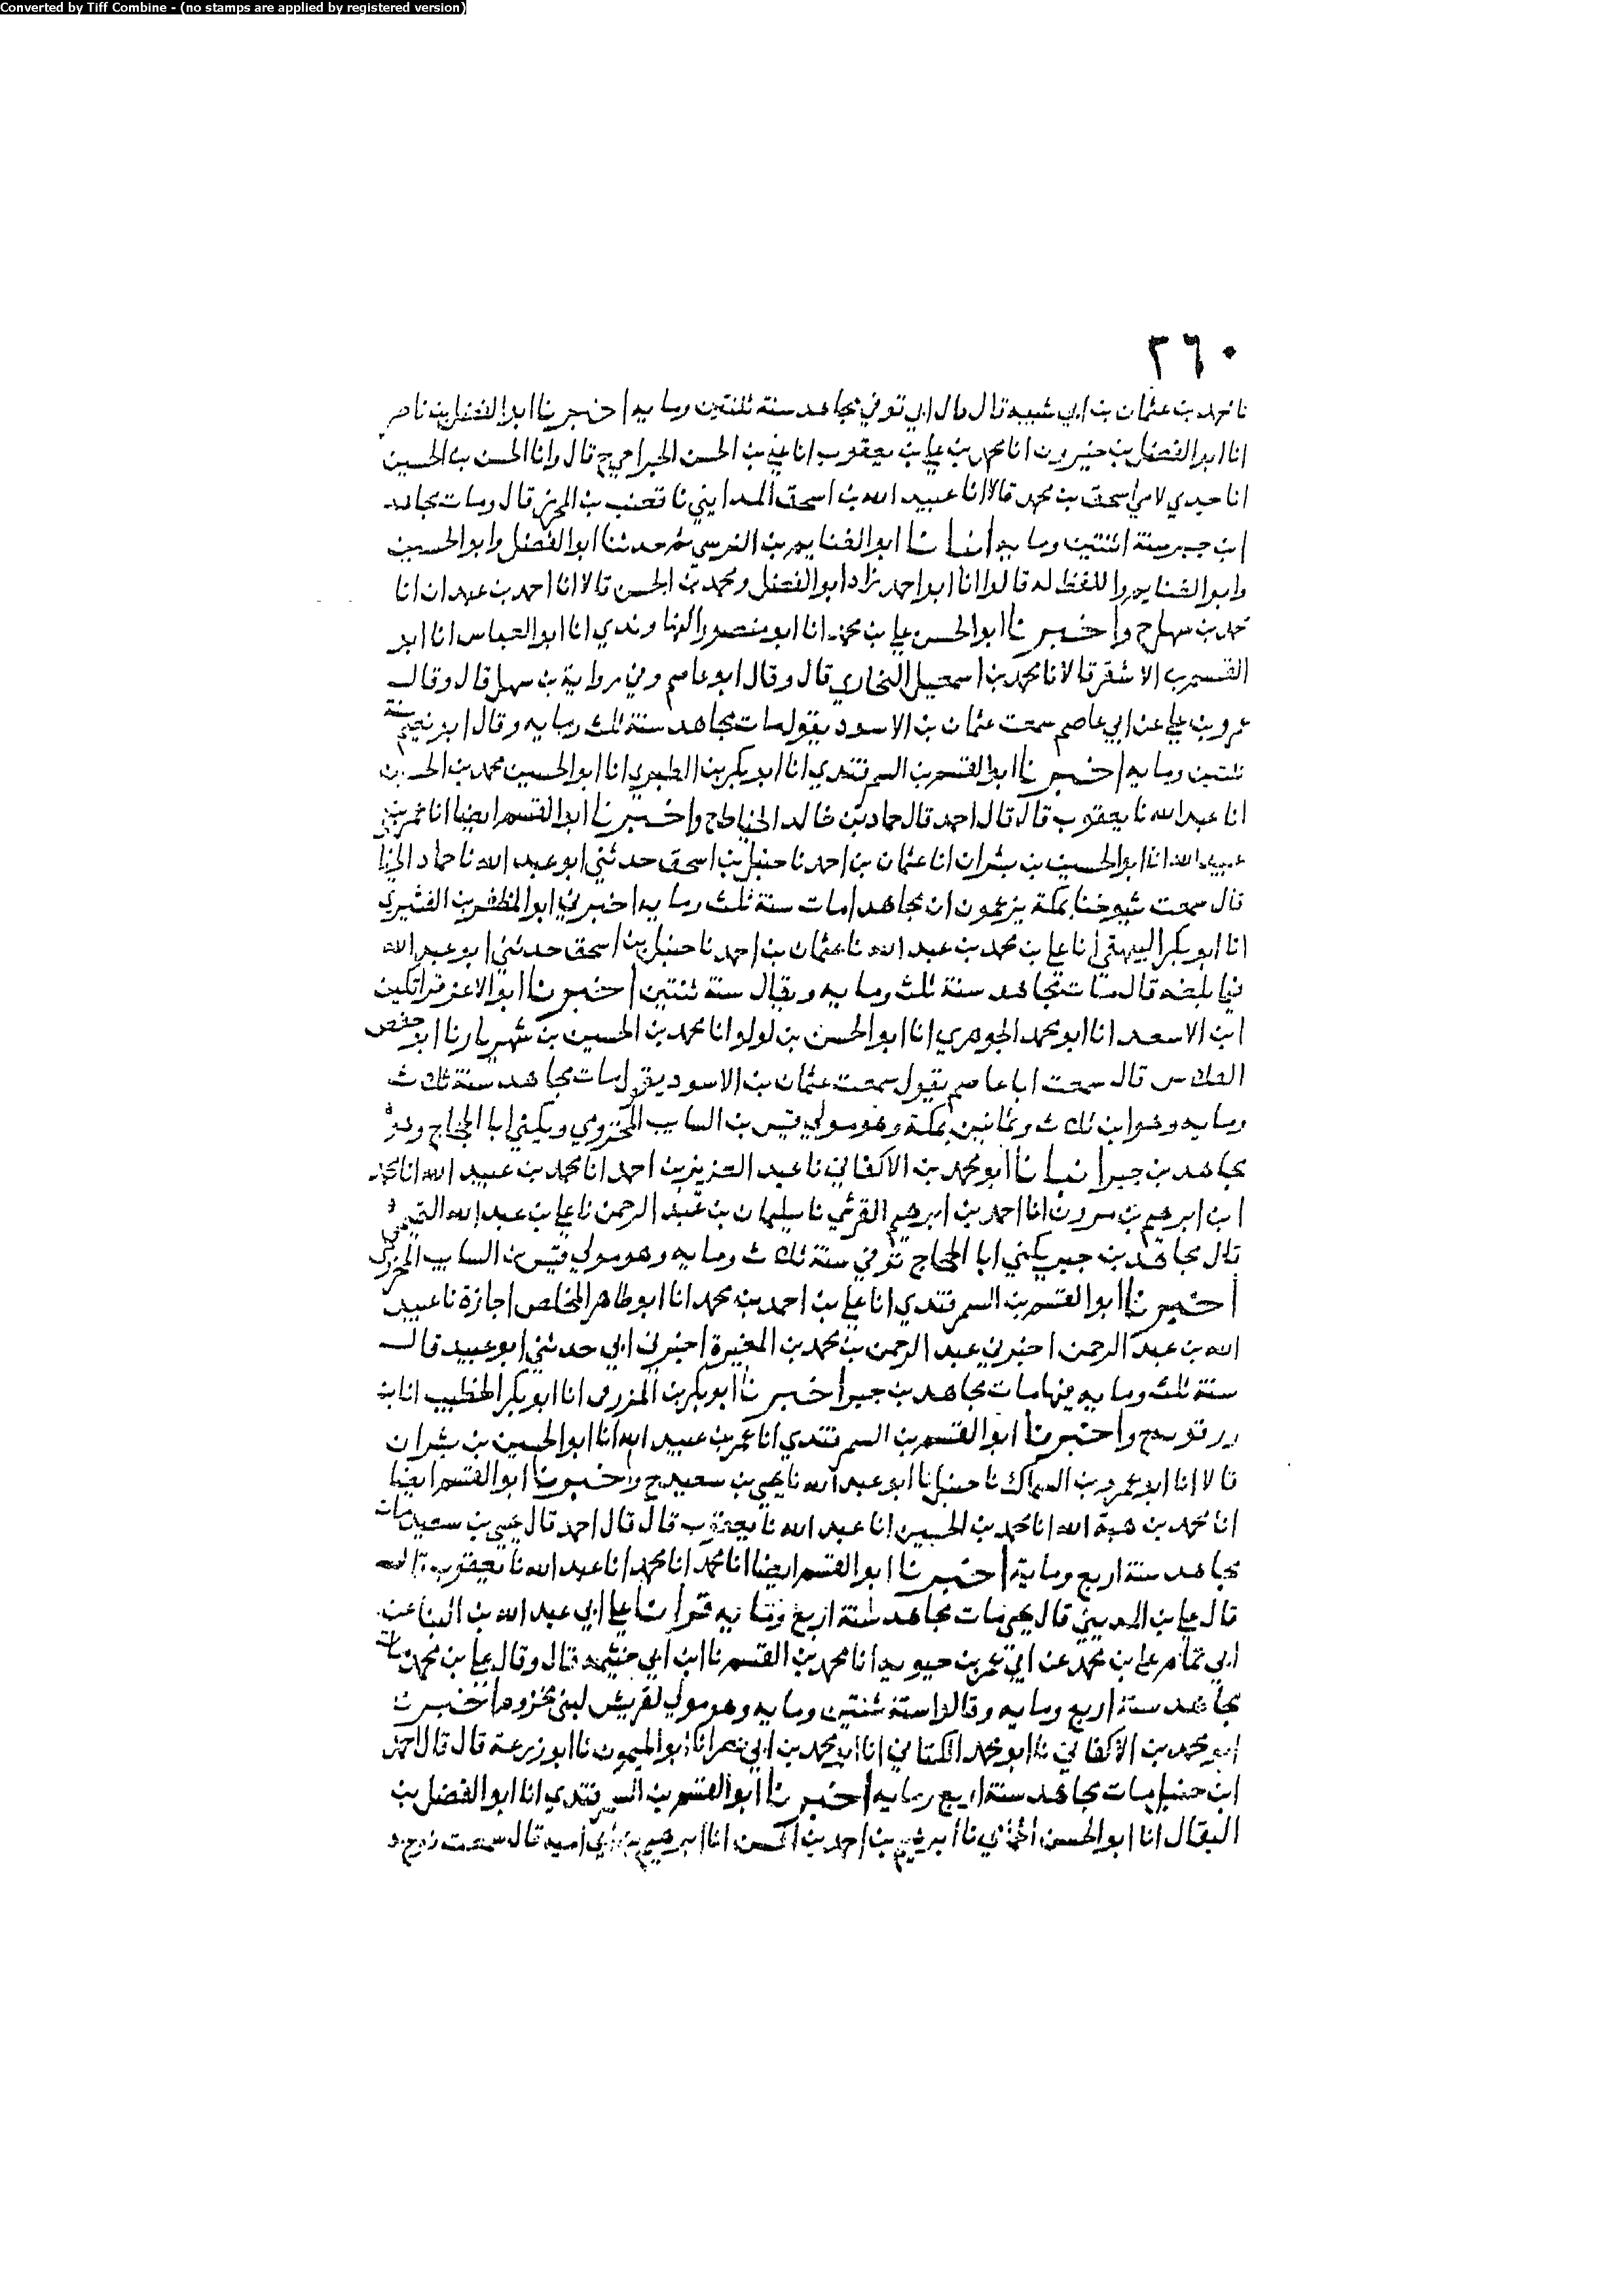 Converted by Tiff Combine - (no stamps are applied by registered version)
٢٦٠
نا محمد بن عثمان بن ابي شيبه قال قال ابي توفي مجاهد سنة ثنتين ومايه اخبرنا ابو الفضل بن ناصر
انا ابو الفضل بن خيرون انا محمد بن علي بن يعقوب انا علي بن الحسن الجراحي ح قال وانا الحسن بن الحسين
انا جدي لامي اسحق بن محمد قالا انا عبيد الله بن اسحق المدايني نا قعنب بن المحرز قال ومات مجاهد
ابن جبر سنة اثنتين ومايه انبانا ابو الغنايم بن النرسي ثم حدثنا ابو الفضل وابو الحسين
وابو الغنايم واللفظ له قالوا انا ابو احمد زاد ابو الفضل ومحمد بن الحسن قالا انا احمد بن عبدان انا
محمد بن سهل ح واخبرنا ابو الحسن علي بن محمد انا ابو منصور النهاوندي انا ابو العباس انا ابو
القسم بن الاشقر قالا نا محمد بن اسمعيل البخاري قال وقال ابو عاصم وفي رواية بن سهل قال وقال
عمرو بن علي عن ابي عاصم سمعت عثمان بن الاسود يقول مات مجاهد سنة ثلث ومايه وقال ابو نعيم سنة
ثنتين ومايه اخبرنا ابو القسم بن السمرقندي انا ابو بكر بن الطبري انا ابو الحسين محمد بن الحسين
انا عبد الله نا يعقوب قال قال احمد قال حماد بن خالد الخياط ح واخبرنا ابو القسم ايضا انا عمر بن
عبيد الله انا ابو الحسين بن بشران انا عثمان بن احمد نا حنبل بن اسحق حدثني ابو عبد الله نا حماد الخيا
قال سمعت شيوخنا بمكة يزعمون ان مجاهدا مات سنة ثلث ومايه اخبرني ابو المظفر بن القشيري
انا ابو بكر البيهقي انا علي بن محمد بن عبد الله نا عثمان بن احمد نا حنبل بن اسحق حدثني ابو عبد الله
فيما بلغه قال مات مجاهد سنة ثلث ومايه ويقال سنة ثنتين اخبرنا ابو الاعز قراتكين
ابن الاسعد انا ابو محمد الجوهري انا ابو الحسن بن لولو انا محمد بن الحسين بن شهريار نا ابو حفص
الفلاس قال سمعت ابا عاصم يقول سمعت عثمان بن الاسود يقول مات مجاهد سنة ثلاث
ومايه وهو ابن ثلاث وثمانين بمكة وهو مولي قيس بن السايب المخزومي ويكني ابا الحجاج وهو
مجاهد بن جبر انبانا ابو محمد بن الاكفاني نا عبد العزيز بن احمد انا محمد بن عبيد الله انا محمد
ابن ابرهيم بن مروان انا احمد بن ابرهيم القرشي نا سليمان بن عبد الرحمن نا علي بن عبد الله التميمي
قال مجاهد بن جبر يكني ابا الحجاج توفي سنة ثلاث ومايه وهو مولي قيس بن السايب المخزومي
اخبرنا ابو القسم بن السمرقندي انا علي بن احمد بن محمد انا ابو طاهر المخلص اجازة نا عبيد
الله بن عبد الرحمن اخبرني عبد الرحمن بن محمد بن المغيرة اخبرني ابي حدثني ابو عبيد قال
سنة ثلث ومايه فيها مات مجاهد بن جبر اخبرنا ابو بكر بن المزرفي انا ابو بكر الخطيب انا بن
رزقويه ح واخبرنا ابو القسم بن السمرقندي انا عمر بن عبيد الله انا ابو الحسين بن بشران
قالا انا ابو عمرو بن السماك نا حنبل نا ابو عبد الله نا يحيي بن سعيد ح واخبرنا ابو القسم ايضا
انا محمد بن هبة الله انا محمد بن الحسين انا عبد الله نا يعقوب قال قال احمد قال يحيي بن سعيد مات
مجاهد سنة اربع ومايه اخبرنا ابو القسم ايضا انا محمد انا محمد انا عبد الله نا يعقوب قال
قال علي بن المديني قال يحيي مات مجاهد سنة اربع ومايه قرانا علي ابي عبد الله بن البنا عن
ابي تمام علي بن محمد عن ابي عمر بن حيويه انا محمد بن القسم نا ابن ابي خيثمه قال وقال علي بن محمد مات
مجاهد سنة اربع ومايه وقالوا سنة ثنتين ومايه وهو مولي لقريش لبني مخزوم اخبرنا
ابو محمد بن الاكفاني نا ابو محمد الكتاني انا ابو محمد بن ابي نصر انا ابو الميمون نا ابو زرعة قال قال احمد
ابن حنبل مات مجاهد سنة اربع ومايه اخبرنا ابو القسم بن السمرقندي انا ابو الفضل بن
البقال انا ابو الحسن نا ابرهيم بن احمد بن الحسن انا ابرهيم بن ابي اميه قال سمعت نوح